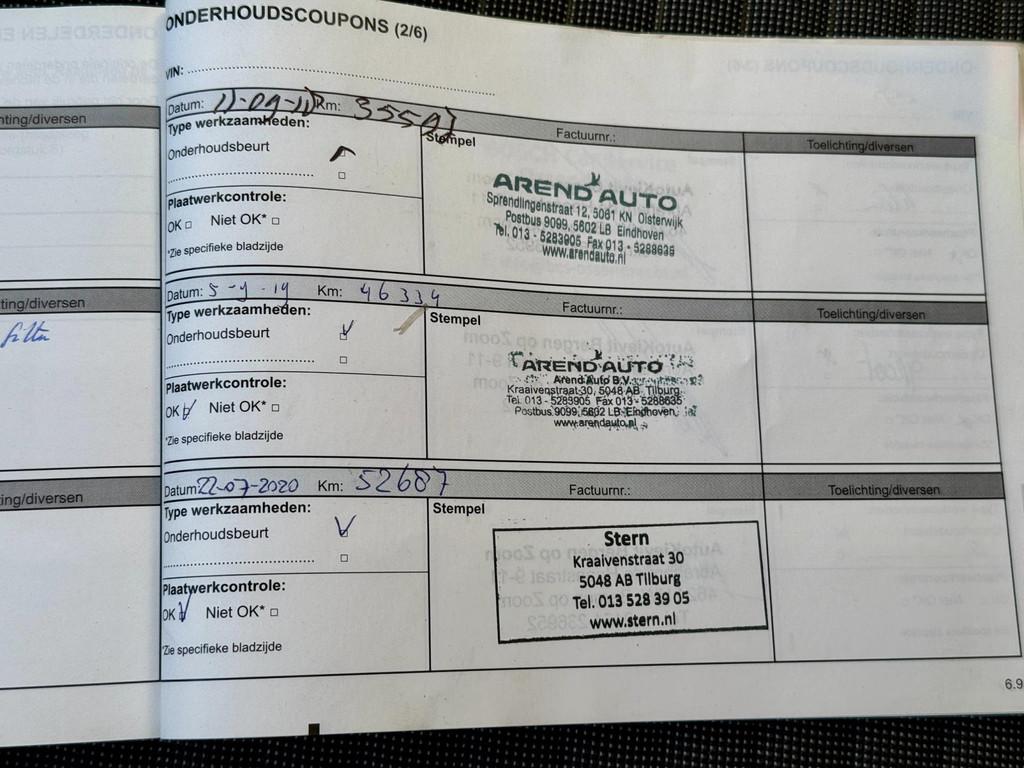 ONDERHOUDSCOUPONS (2/6)
VIN:
Datum: 11-09-1 Km: 3559
Factuurnr.:
Toelichting/diversen
Type werkzaamheden:
Stempel
Onderhoudsbeurt
Plaatwerkcontrole:
OK Niet OK*
*Zie specifieke bladzijde
AREND AUTO
Sprendlingenstraat 12, 5061 KN Oisterwijk
Postbus 9099, 5602 LB Eindhoven
Tel. 013 - 5283905 Fax 013 - 5288635
www.arendauto.nl
hting/diversen
Datum: 5-9-19 Km: 46334
Factuurnr.:
Toelichting/diversen
Type werkzaamheden:
Stempel
Onderhoudsbeurt
Plaatwerkcontrole:
OK Niet OK*
*Zie specifieke bladzijde
AREND AUTO
Arend Auto B.V.
Kraaivenstraat 30, 5048 AB Tilburg
Tel. 013 - 5283905 Fax 013 - 5288635
Postbus 9099, 5602 LB Eindhoven
www.arendauto.nl
ting/diversen
filter
Datum: 22-07-2020 Km: 52687
Factuurnr.:
Toelichting/diversen
Type werkzaamheden:
Stempel
Onderhoudsbeurt
Plaatwerkcontrole:
OK Niet OK*
*Zie specifieke bladzijde
Stern
Kraaivenstraat 30
5048 AB Tilburg
Tel. 013 528 39 05
www.stern.nl
ting/diversen
6.9